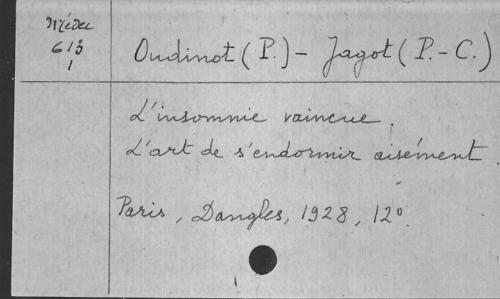 Médec
613
1
Oudinot (P.) - Jagot (P.-C.)
L'insomnie vaincue.
L'art de s'endormir aisément.
Paris, Dangles, 1928, 12°.